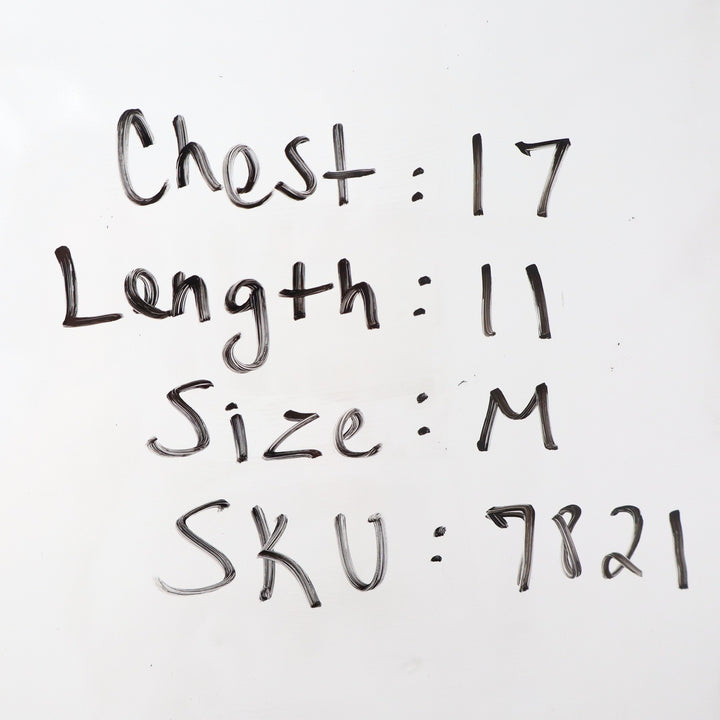 Chest: 17
Length: 11
Size: M
SKU: 7821